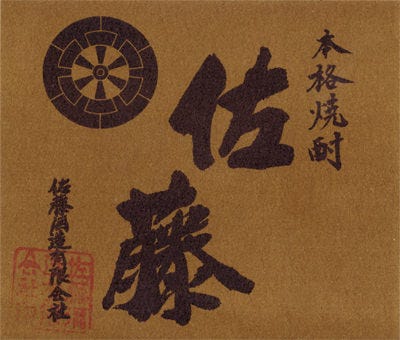 本格焼酎
佐藤
佐藤酒造有限会社